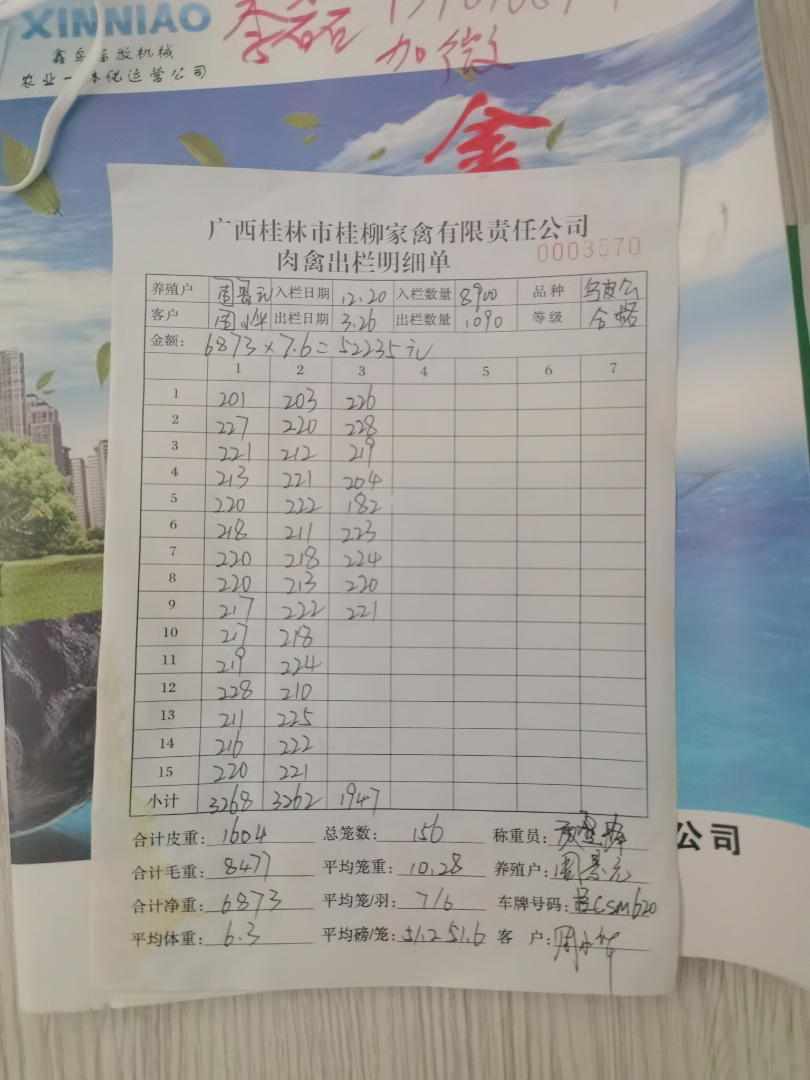 XINNIAO
李磊
加微
鑫鸟畜牧机械
农业一体化运营公司
金
广西桂林市桂柳家禽有限责任公司
肉禽出栏明细单 0003570
养殖户 周景元 入栏日期 12.20 入栏数量 8900 品种 乌皮公
客户 周小华 出栏日期 3.26 出栏数量 1090 等级 合格
金额: 6873×7.6=52235元
1 2 3 4 5 6 7
1 201 203 226
2 227 220 228
3 221 212 219
4 213 221 204
5 220 222 182
6 218 211 223
7 220 218 224
8 220 213 220
9 217 222 221
10 217 218
11 219 224
12 228 210
13 211 225
14 216 222
15 220 221
小计 3268 3262 1947
合计皮重: 1604 总笼数: 156 称重员:
合计毛重: 8477 平均笼重: 10.28 养殖户: 周景元
合计净重: 6873 平均笼/羽: 7/6 车牌号码: CSM620
平均体重: 6.3 平均磅/笼: 51.2 51.6 客 户: 周小华
公司